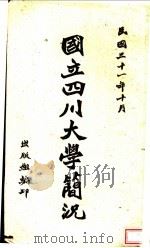 民國三十一年十月
國立四川大學簡況
出版組編印